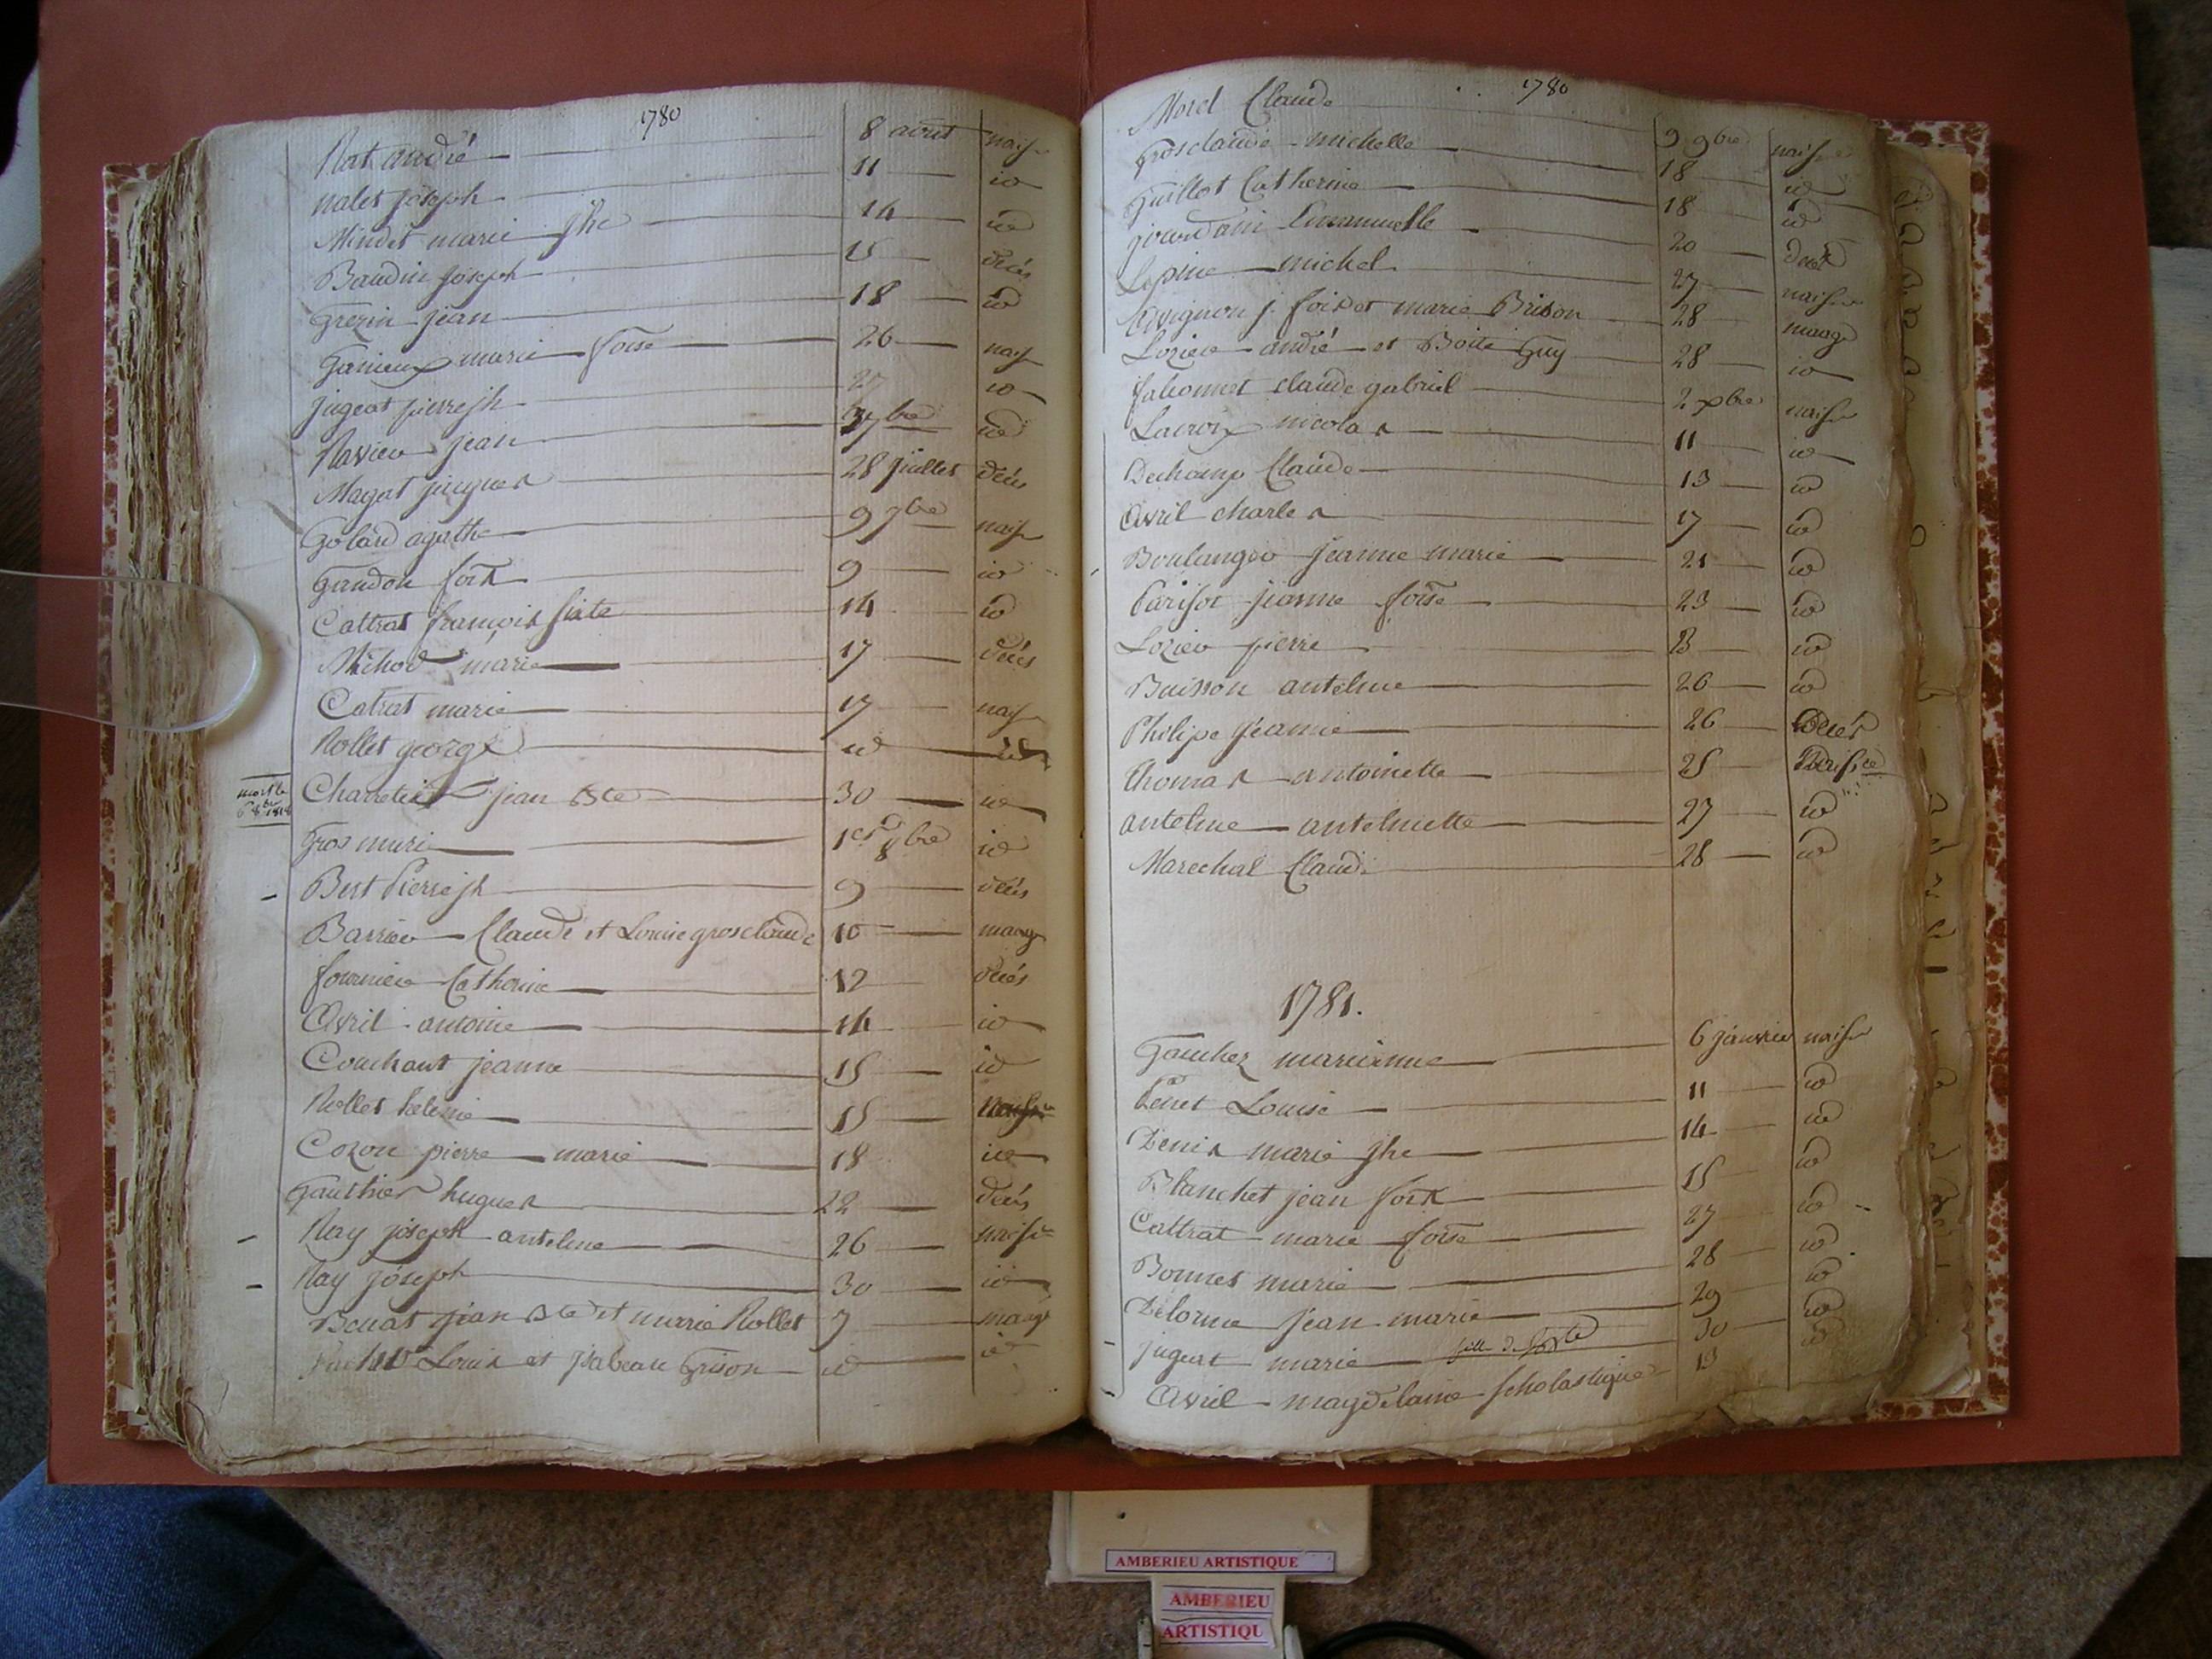 1780
Rat andré 8 août naiss
nalet joseph 11 id
Mindet marie jhe 14 id
Baudin joseph 15 décès
Grezin jean 18 id
Ganieux marie foise 26 naiss
jugeat pierre jh 27 id
Ravier jean 7bre id
Magat jacques 28 juillet décès
Golard agathe 9 7bre naiss
Gandon fois 9 id
Cattrat françois 14 id
Michod marie 17 décès
Catrat marie 17 naiss
Rollet george id id
mort le
Charretier jean Bte 30 id
Gros marie 1er 8bre id
Bert Pierre jh 9 décès
Barrier Claude et Louise grosclaude 10 mariage
fournier Catherine 12 décès
Avril antoine 14 id
Couchant jeanne 15 id
Rollet helene 15 naiss
Cozon pierre marie 18 id
Gauthier hugues 22 décès
Ray joseph antelme 26 naiss
Ray joseph 30 id
Benat jean Bte et marie Rollet 7 mariage
Louis et jsabeau Grison id id
1780
Morel Claude 9 9bre naiss
Grosclaude michelle 18 id
Guillot Catherine 18 id
jourdain Emmanuelle 20 décès
Lepine michel 27 naiss
Avignon j. fois et marie Brison 28 mariage
Lozier andré et Boite Guy 28 id
falconnet claude gabriel 2 xbre naiss
Lacroix nicolas 11 id
Dechamp Claude 13 id
Avril charles 17 id
Boulanger jeanne marie 21 id
Parisot jeanne foise 23 id
Lozier pierre id
Buisson antelme 26 id
Philipe jeanne 26 décès
Thomas antoinette 25 naissce
antelme antelmette 27 id
Marechal Claude 28 id
1781.
Gauchez marianne 6 janvier naiss
Penet Louise 11 id
Denis marie jhe 14 id
Blanchet jean fois 15 id
Cattrat marie foise 27 id
Bonnet marie 28 id
Delorme jean marie 29 id
jugeat marie fille de 30 id
Avril magdelaine scholastique 13 id
AMBERIEU ARTISTIQUE
AMBERIEU
ARTISTIQU